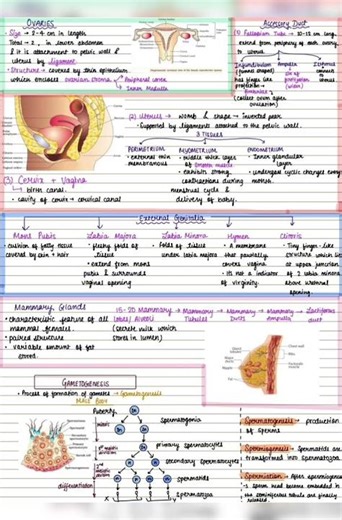 OVARIES
• Size → 2-4 cm in length
Total → 2, in lower abdomen
& it is attachment to pelvic wall &
uterus by ligament
• Structure → covered by thin epithelium
which encloses ovarian stroma
Peripheral cortex
Inner Medulla
Accessory Duct
(1) Fallopian Tube → 10-12 cm long,
extend from periphery of each ovary
to uterus
Infundibulum
(funnel shaped)
has finger like
projections →
Fimbriae
(collect ovum after
ovulation)
Ampulla
site of
fertilization
(wider)
Isthmus
connect
(2) Uterus → womb & shape → Inverted pear
• Supported by ligaments attached to the pelvic wall.
3 TISSUES
PERIMETRIUM
• external thin
membranous
MYOMETRIUM
• middle thick layer
of smooth muscle
• exhibits strong
contractions during
delivery of baby.
ENDOMETRIUM
• Inner glandular
layer
• undergoes cyclic changes every
month.
menstrual cycle &
(3) Cervix + Vagina
birth canal.
• cavity of cervix → cervical canal
External Genitalia
Mons Pubis
• cushion of fatty tissue
covered by skin + hair
Labia Majora
• fleshy folds of
tissue
• extend from mons
pubis & surrounds
vaginal opening
Labia Minora
• folds of tissue
under labia majora
Hymen
• A membrane
that partially
covers vagina
• It's not a indicator
of virginity.
Clitoris
• Tiny finger-like
structure which lie
at upper junction
of 2 labia minora
above urethral
opening.
Mammary Glands
• characteristic feature of all
mammal females.
• paired structure
• variable amount of fat
stored.
15-20 Mammary → Mammary → Mammary → Mammary → Lactiferous
lobes/ Alveoli
Tubules
Ducts
Ampulla
duct
(secrete milk which
stores in lumen)
GAMETOGENESIS
• Process of formation of gametes → Gametogenesis
Puberty
mitosis
differentiation
spermatogonia
primary spermatocytes
secondary spermatocytes
spermatids
spermatozoa
X
Y
Spermatogenesis → production
of sperms
Spermiogenesis → Spermatids are
transformed into spermatozoa
Spermiation → After spermiogenesis
sperm head become embedded in
the seminiferous tubule are finally
released